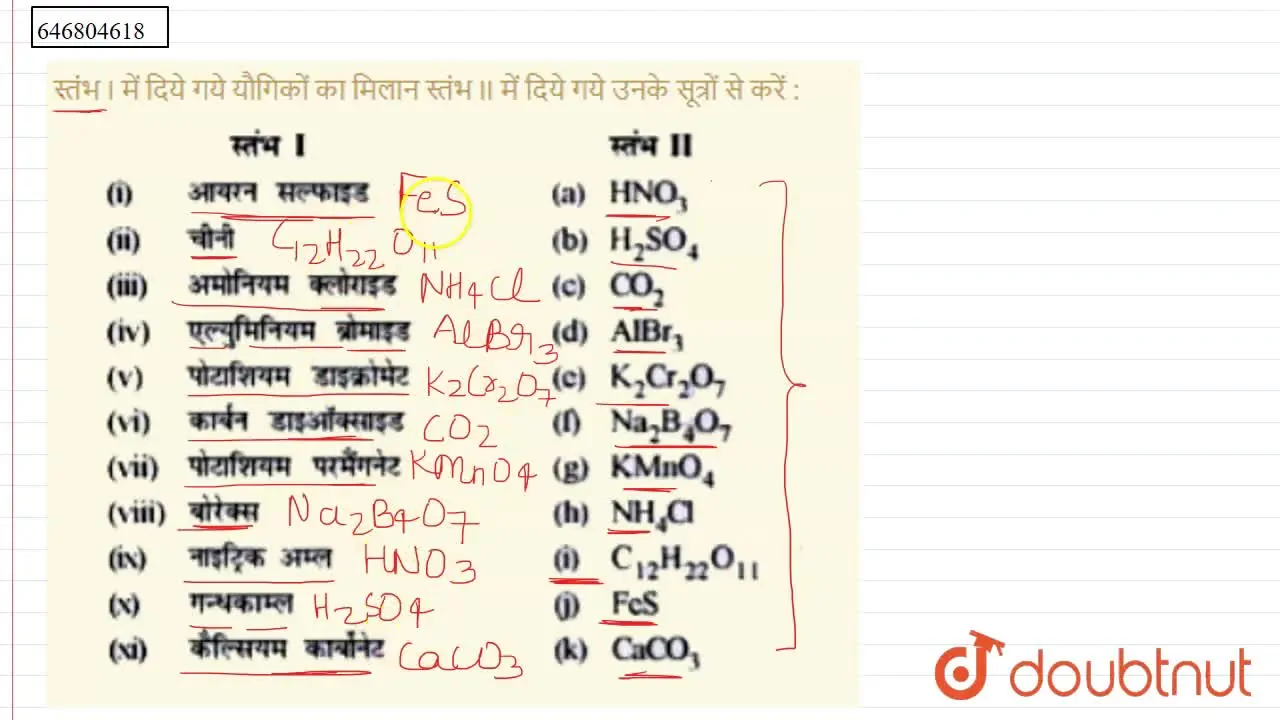 646804618
स्तंभ I में दिये गये यौगिकों का मिलान स्तंभ II में दिये गये उनके सूत्रों से करें :
स्तंभ I स्तंभ II
(i) आयरन सल्फाइड FeS (a) HNO₃
(ii) चीनी C₁₂H₂₂O₁₁ (b) H₂SO₄
(iii) अमोनियम क्लोराइड NH₄Cl (c) CO₂
(iv) एल्युमिनियम ब्रोमाइड AlBr₃ (d) AlBr₃
(v) पोटाशियम डाइक्रोमेट K₂Cr₂O₇ (e) K₂Cr₂O₇
(vi) कार्बन डाइऑक्साइड CO₂ (f) Na₂B₄O₇
(vii) पोटाशियम परमैंगनेट KMnO₄ (g) KMnO₄
(viii) बोरेक्स Na₂B₄O₇ (h) NH₄Cl
(ix) नाइट्रिक अम्ल HNO₃ (i) C₁₂H₂₂O₁₁
(x) गन्धकाम्ल H₂SO₄ (j) FeS
(xi) कैल्सियम कार्बोनेट CaCO₃ (k) CaCO₃
doubtnut